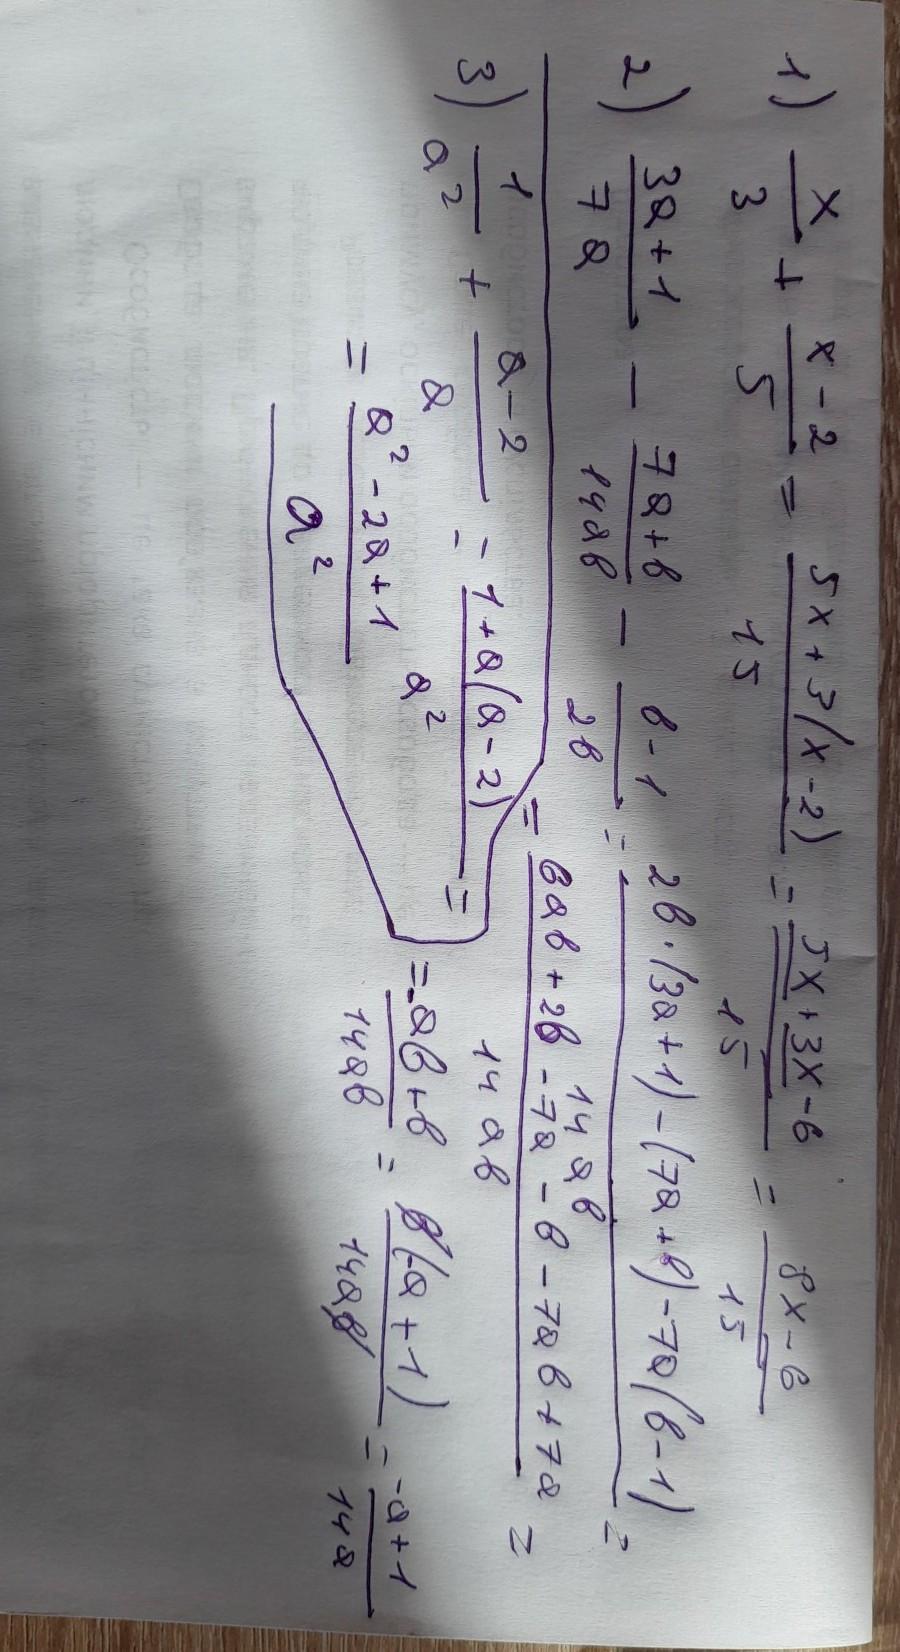 1) x/3 + x-2/5 = 5x+3(x-2)/15 = 5x+3x-6/15 = 8x-6/15
2) 3a+1/7a - 7a+b/14ab - b-1/2b = 2b·(3a+1)-(7a+b)-7a(b-1)/14ab =
= 6ab+2b-7a-b-7ab+7a/14ab =
= -ab+b/14ab = b(-a+1)/14ab = -a+1/14a
3) 1/a² + a-2/a = 1+a(a-2)/a² =
= a²-2a+1/a²